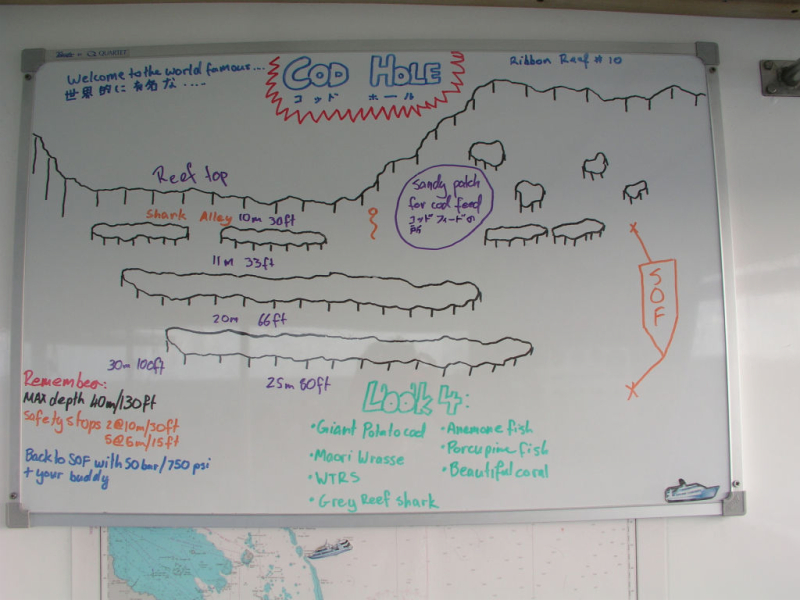 QUARTET
Welcome to the world famous...
世界的に有名な....
COD HOLE
コッド ホール
Ribbon Reef #10
Reef top
Shark Alley 10m 30ft
Sandy patch
for cod feed
コッドフィードの
所
11m 33ft
20m 66ft
30m 100ft
25m 80ft
SOF
Remember:
MAX depth 40m/130ft
Safety stops 2@10m/30ft
5@5m/15ft
Back to SOF with 50bar/750 psi
+ your buddy
Look 4:
• Giant Potato cod
• Maori Wrasse
• WTRS
• Grey Reef shark
• Anemone fish
• Porcupine fish
• Beautiful coral